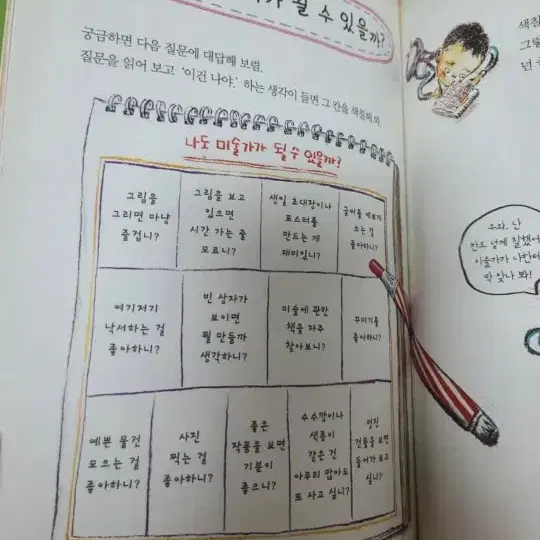 될 수 있을까?
궁금하면 다음 질문에 대답해 보렴.
질문을 읽어 보고 '이건 나야.' 하는 생각이 들면 그 칸을 색칠해 봐
나도 미술가가 될 수 있을까?
그림을
그리면 마냥
즐겁니?
그림을 보고
있으면
시간 가는 줄
모르니?
생일 초대장이나
포스터를
만드는 게
재미있니?
글씨를
쓰는 걸
좋아하니?
여기저기
낙서하는 걸
좋아하니?
빈 상자가
보이면
뭘 만들까
생각하니?
미술에 관한
책을 자주
찾아보니?
꾸미기를
좋아하니?
예쁜 물건
모으는 걸
좋아하니?
사진
찍는 걸
좋아하니?
좋은
작품을 보면
기분이
좋으니?
수수깡이나
색종이
같은 건
아무리 많아도
또 사고 싶니?
멋진
건물을 보면
들어가 보고
싶니?
색칠
그렇
던
우와, 난
반도 넘게 칠했어
미술가가 나한테
딱 맞나 봐!